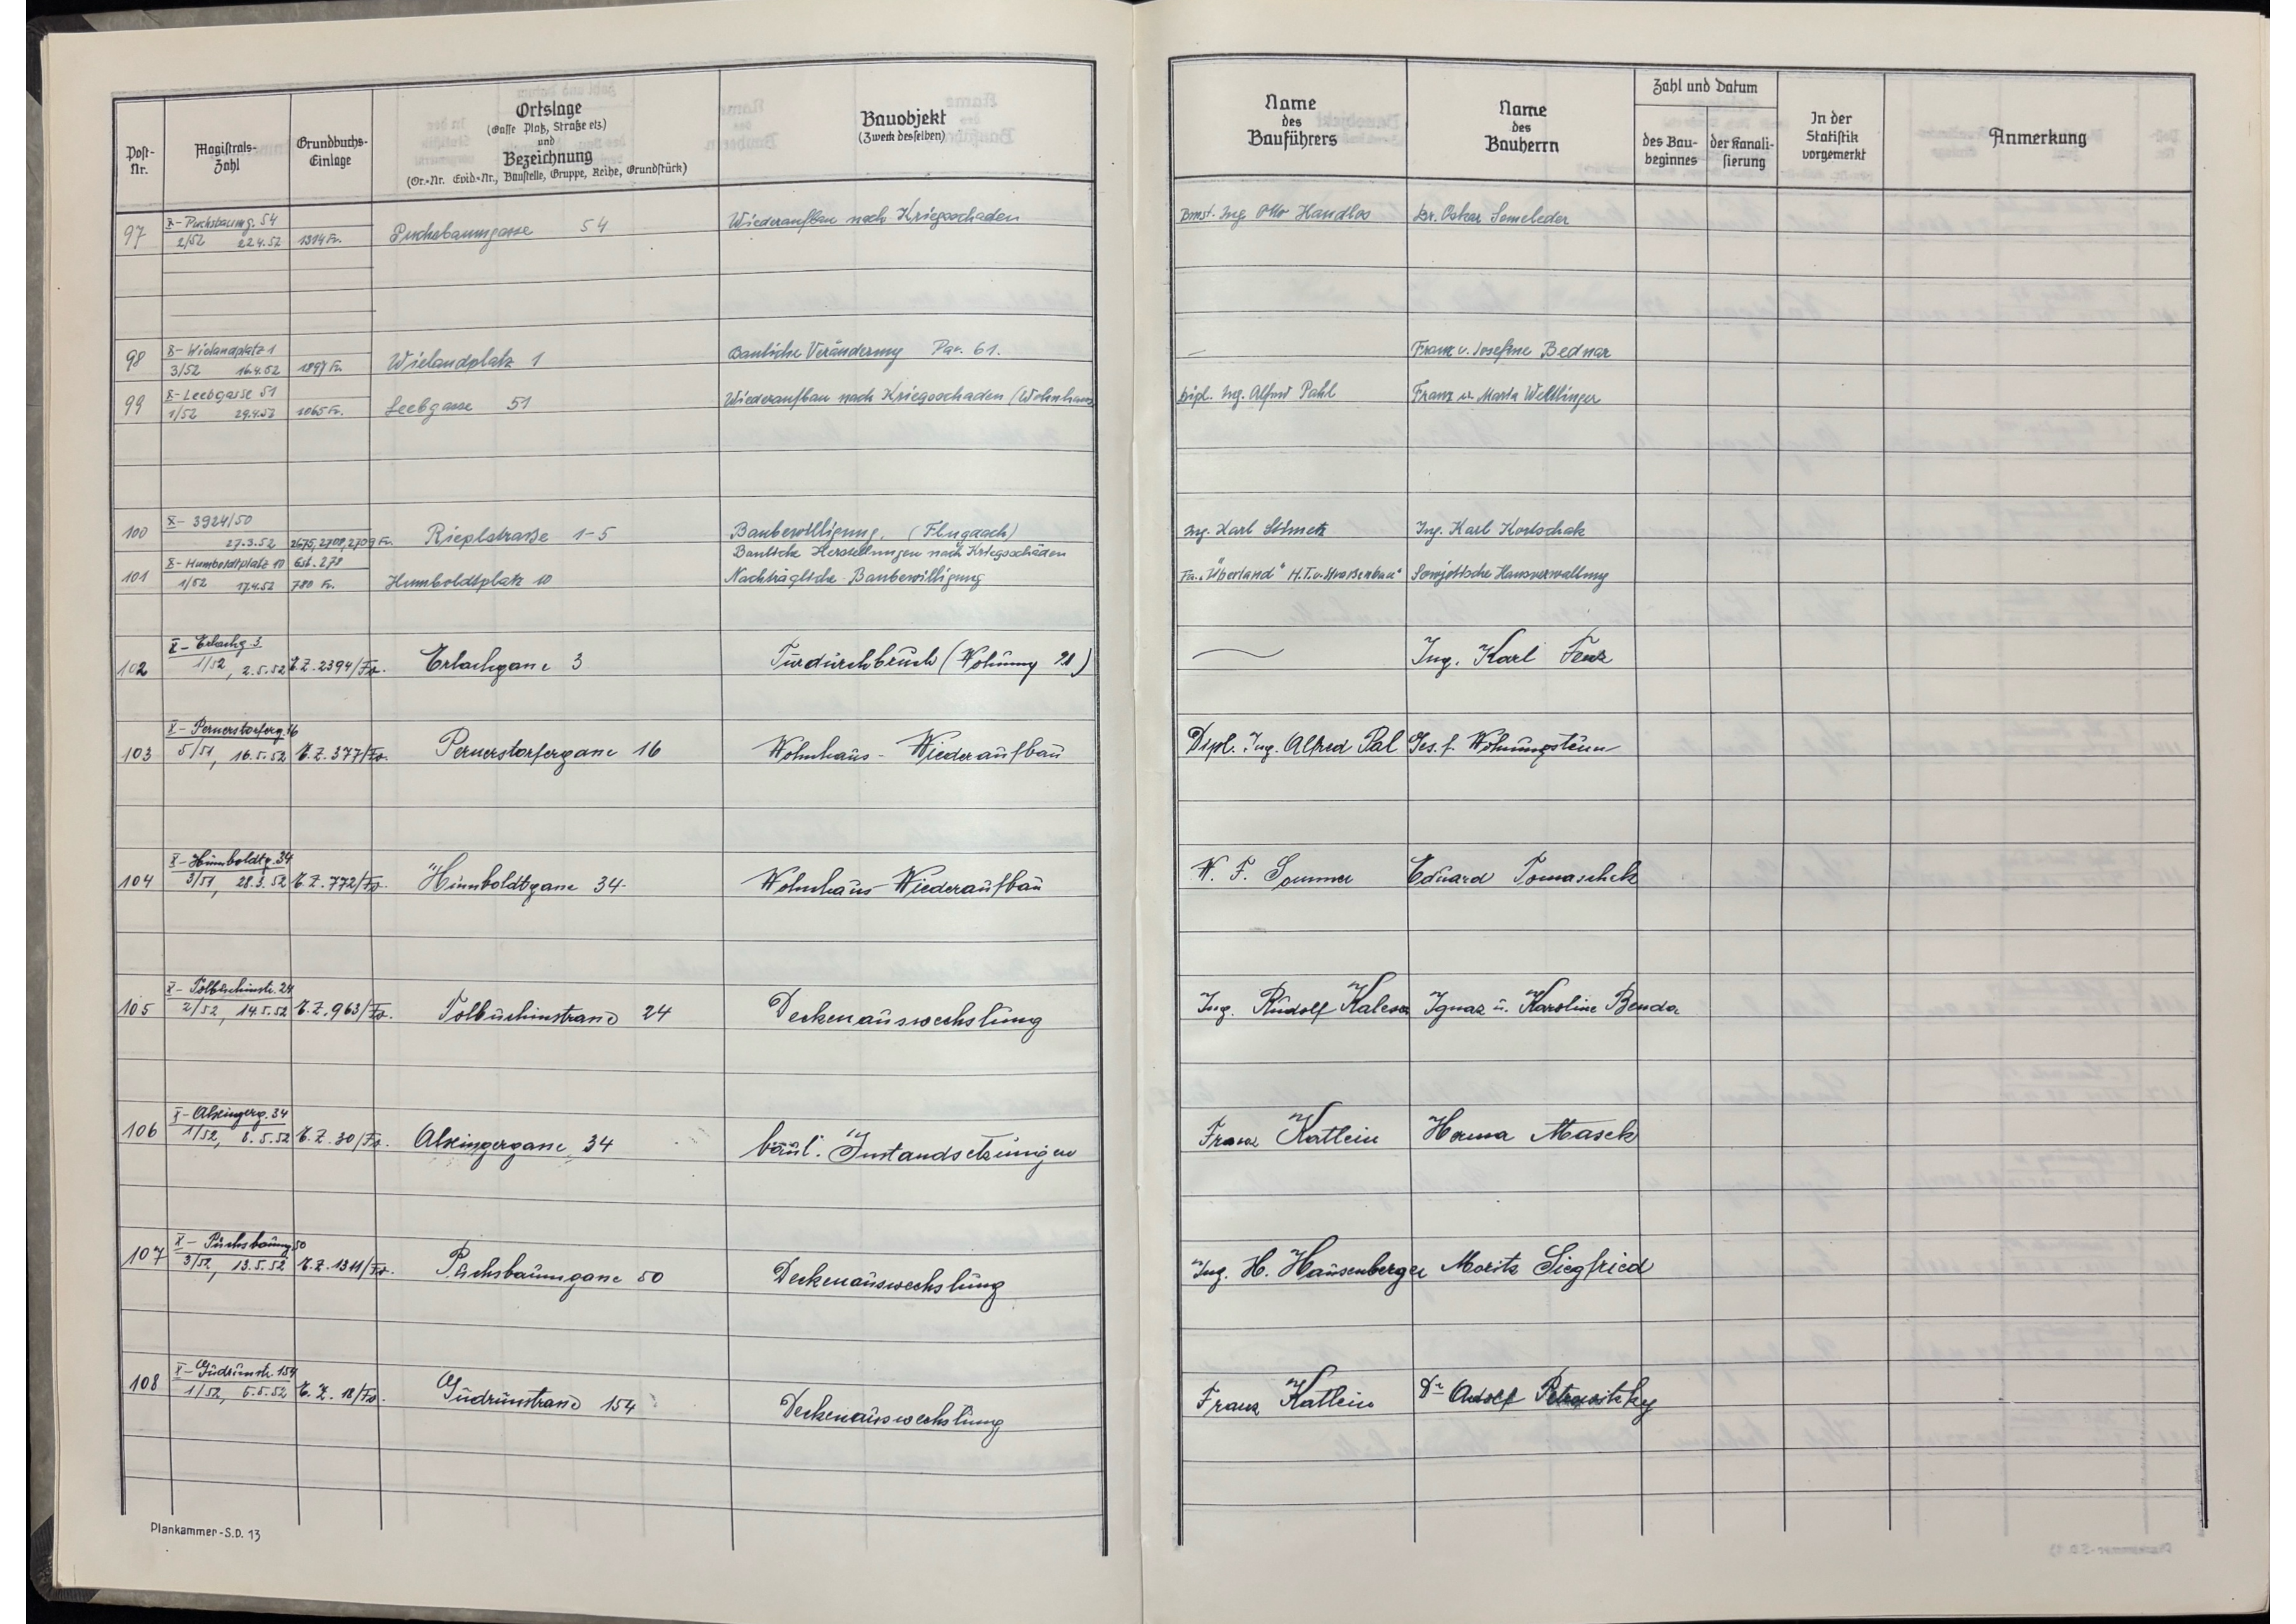 Post-Nr.
Magistrats-Zahl
Grundbuchs-Einlage
Ortslage
(Gasse Platz, Straße etz)
und
Bezeichnung
(Or.-Nr. Evid.-Nr., Baustelle, Gruppe, Reihe, Grundstück)
Bauobjekt
(Zweck desselben)
Name
des
Bauführers
Name
des
Bauherrn
Zahl und Datum
des Bau-beginnes
der Kanali-sierung
In der
Statistik
vorgemerkt
Anmerkung
97
X- Puchsbaumg. 54
2/52 22.4.52 1314 Fr.
Puchsbaumgasse 54
Wiederaufbau nach Kriegsschaden
Bmst. Ing. Otto Handlos
Dr. Oskar Semeleder
98
X- Wielandplatz 1
3/52 16.4.52 1897 Fr.
Wielandplatz 1
Bauliche Veränderung Par. 61.
—
Franz u. Josefine Bednar
99
X- Leebgasse 51
1/52 29.4.52 1065 Fr.
Leebgasse 51
Wiederaufbau nach Kriegsschaden (Wohnhaus
Dipl. Ing. Alfred Pahl
Franz u. Maria Weltlinger
100
X- 3924/50
27.3.52 2675, 2708, 2709 Fr.
Rieplstraße 1-5
Baubewilligung. (Flugdach)
Ing. Karl Stimetz
Ing. Karl Kortschak
101
X- Humboldtplatz 10 Gst. 278
1/52 17.4.52 780 Fr.
Humboldtplatz 10
Bauliche Herstellungen nach Kriegsschäden
Nachträgliche Baubewilligung
Fa. "Überland" H.T.u.Straßenbau"
Sowjetische Hausverwaltung
102
X- Erlachg. 3.
1/52, 2.5.52 E.Z. 2394/Fav.
Erlachgasse 3
Türdurchbruch (Wohnung 21)
—
Ing. Karl Fenz
103
X- Pernerstorferg. 16
5/51, 16.5.52 E.Z. 377/Fav.
Pernerstorfergasse 16
Wohnhaus - Wiederaufbau
Dipl. Ing. Alfred Pal
Ges. f. Wohnungsteien
104
X- Humboldtg. 34
3/51, 28.3.52 E.Z. 772/Fav.
Humboldtgasse 34
Wohnhaus-Wiederaufbau
W. F. Sommer
Eduard Tomaschek
105
X- Tolbuchinstr. 24
2/52, 14.5.52 E.Z. 963/Fav.
Tolbuchinstrasse 24
Deckenauswechslung
Ing. Rudolf Kalesa
Ignaz u. Karoline Benda
106
X- Alxingerg. 34
1/52, 8.5.52 E.Z. 30/Fav.
Alxingergasse 34
baul. Instandsetzungen
Franz Katlein
Herma Masek
107
X- Puchsbaumg. 50
3/52, 13.5.52 E.Z. 1311/Fav.
Puchsbaumgasse 50
Deckenauswechslung
Ing. H. Hausenberger
Moritz Siegfried
108
X- Gudrunstr. 154
1/52, 5.5.52 E.Z. 18/Fav.
Gudrunstrasse 154
Deckenauswechslung
Franz Katlein
Dr Adolf Petrovitzky
Plankammer-S.D. 13